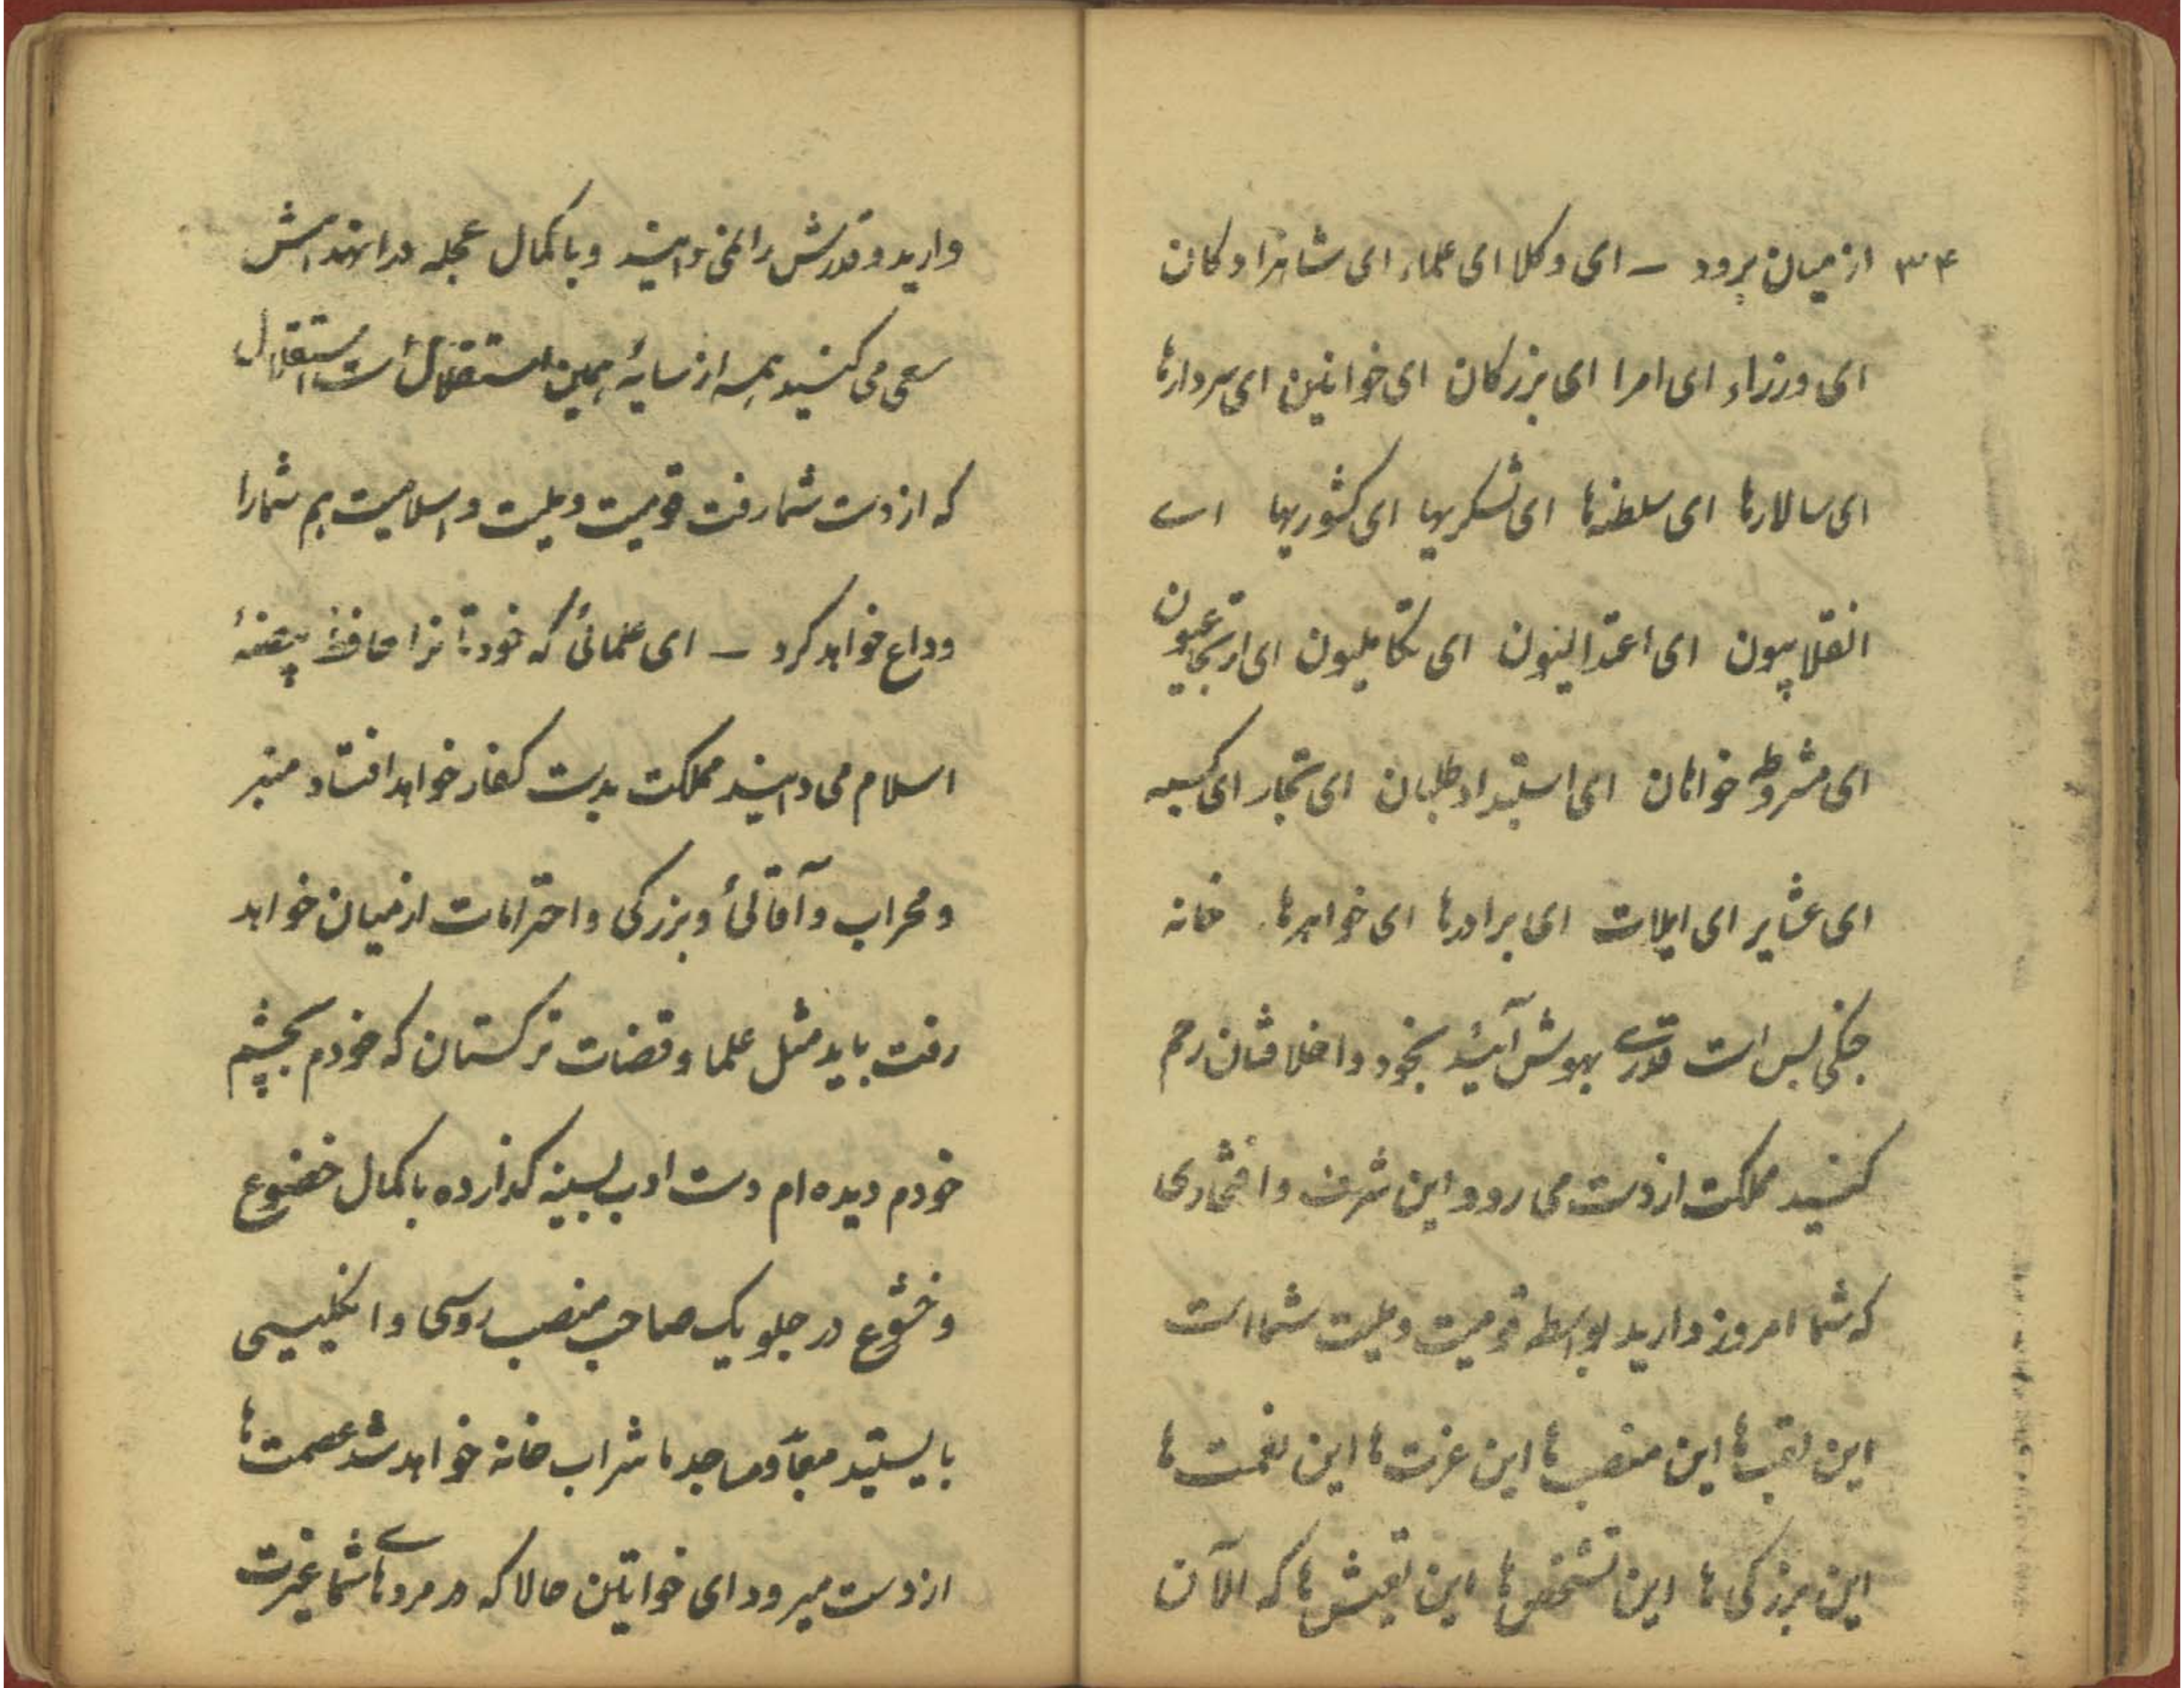 ۳۴ از میان برود – ای وکلا ای علماء ای شاهزادکان
ای وزراء ای امرا ای بزرکان ای خوانین ای سردارها
ای سالارها ای سلطنه‌ها ای لشکریها ای کشوریها اے
انقلابیون ای اعتدالیون ای تکاملیون ای ارتجاعیون
ای مشروطه خواهان ای استبداد طلبان ای تجار ای کسبه
ای عشایر ای ایلات ای برادرها ای خواهرها خانه
جنکی بس است قدرے بهوش آئید بخود و اخلافتان رحم
کنید مملکت از دست می رود و این شرف و افتخاری
که شما امروز دارید بواسطه قومیت و ملیت شما است
این لقب‌ها این منصب‌ها این عزت‌ها این نعمت‌ها
این بزرکی‌ها این تشخص‌ها این تعیش‌ها که الآن
دارید و قدرش را نمی دانید و با کمال عجله در انهدامش
سعی می کنید همه از سایهٔ همین استقلال است استقلال
که از دست شما رفت قومیت و ملیت و اسلامیت هم شما را
وداع خواهد کرد – ای علمائی که خودتانرا حافظ بیضهٔ
اسلام می دانید مملکت بدست کفار خواهد افتاد منبر
و محراب و آقائی و بزرکی و احترامات از میان خواهد
رفت باید مثل علما و قضات ترکستان که خودم بچشم
خودم دیده ام دست ادب بسینه کذارده با کمال خضوع
و خشوع در جلو یک صاحب منصب روسی و انکلیسی
بایستید معابد و مساجد ما شراب خانه خواهد شد عصمت‌ها
از دست میرود ای خوانین حالا که در مردهاے شما غیرت